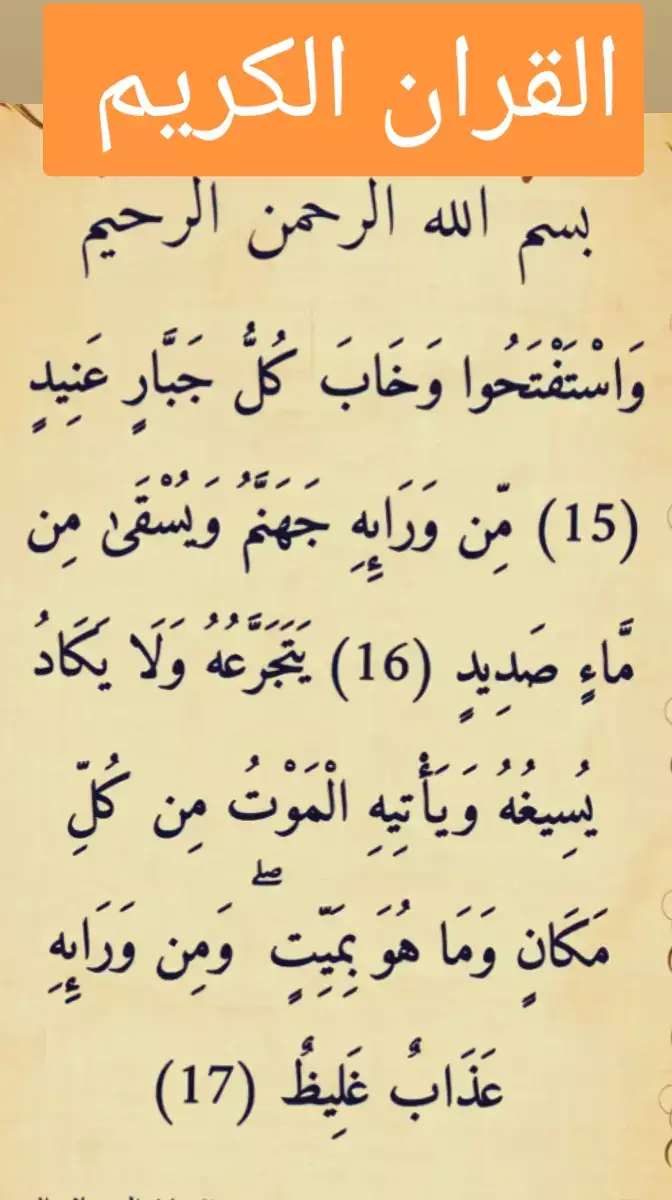 القران الكريم
بسم الله الرحمن الرحيم
وَاسْتَفْتَحُوا وَخَابَ كُلُّ جَبَّارٍ عَنِيدٍ
(15) مِّن وَرَائِهِ جَهَنَّمُ وَيُسْقَىٰ مِن
مَّاءٍ صَدِيدٍ (16) يَتَجَرَّعُهُ وَلَا يَكَادُ
يُسِيغُهُ وَيَأْتِيهِ الْمَوْتُ مِن كُلِّ
مَكَانٍ وَمَا هُوَ بِمَيِّتٍ ۖ وَمِن وَرَائِهِ
عَذَابٌ غَلِيظٌ (17)